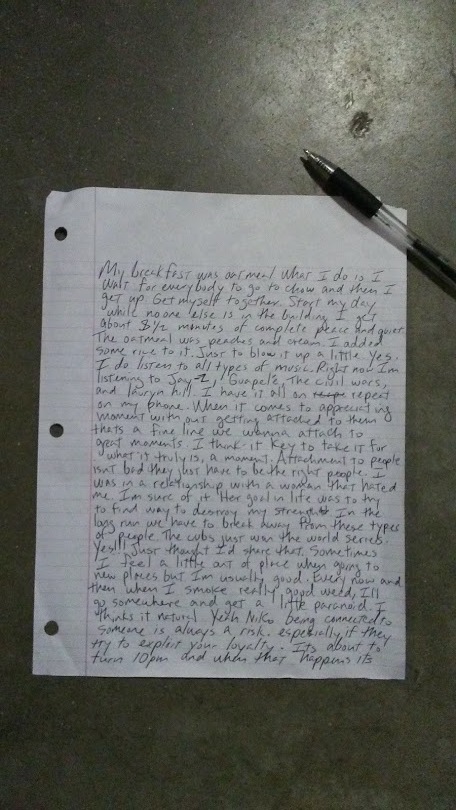 My breakfast was oatmeal what I do is I
wait for everybody to go to chow and then I
get up. Get myself together. Start my day
while no one else is in the building I get
about 8 1/2 minutes of complete peace and quiet.
The oatmeal was peaches and cream. I added
some rice to it. Just to blow it up a little. Yes.
I do listen to all types of music. Right now I'm
listening to Jay-Z, Guapele, The civil wars,
and lauryn hill. I have it all on repeat
on my phone. When it comes to appreciating
moment with out getting attached to them
thats a fine line we wanna attach to
great moments. I think it key to take it for
what it truly is, a moment. Attachment to people
isnt bad they just have to be the right people. I
was in a relationship with a woman that hated
me. I'm sure of it. Her goal in life was to try
to find way to destroy my strength. In the
long run we have to break away from these types
of people. The cubs just won the world series.
Yes!!! Just thought I'd share that. Sometimes
I feel a little out of place when going to
new places but I'm usually good. Every now and
then when I smoke really good weed, I'll
go somewhere and get a little paranoid. I
thinks it natural. Yeah Niko being connected to
someone is always a risk. especially if they
try to exploit your loyalty. Its about to
turn 10pm and when that happens its